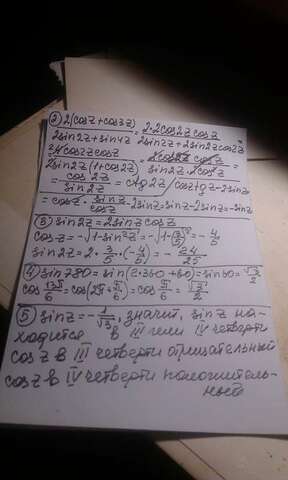 2) 2(cosz+cos3z) / 2sin2z+sin4z = 2·2cos2z cosz / 2sin2z+2sin2z cos2z =
4cos2z cosz / 2sin2z(1+cos2z) = 4cos2z cosz / sin2z·2cos²z =
= cos2z / sin2z = ctg2z / cosz tgz - 2sinz
= cosz · sinz/cosz - 2sinz = sinz - 2sinz = -sinz
3) sin2z = 2sinz cosz
cosz = -√1-sin²z = -√1-(3/5)² = -4/5
sin2z = 2·3/5·(-4/5) = -24/25
4) sin780 = sin(2·360+60) = sin60 = √3/2
cos 13π/6 = cos(2π+π/6) = cos π/6 = √3/2
5) sinz = -1/√3, значит, sinz на-
ходится в III или IV четверти
cosz в III четверти отрицательный
cosz в IV четверти положитель-
ный